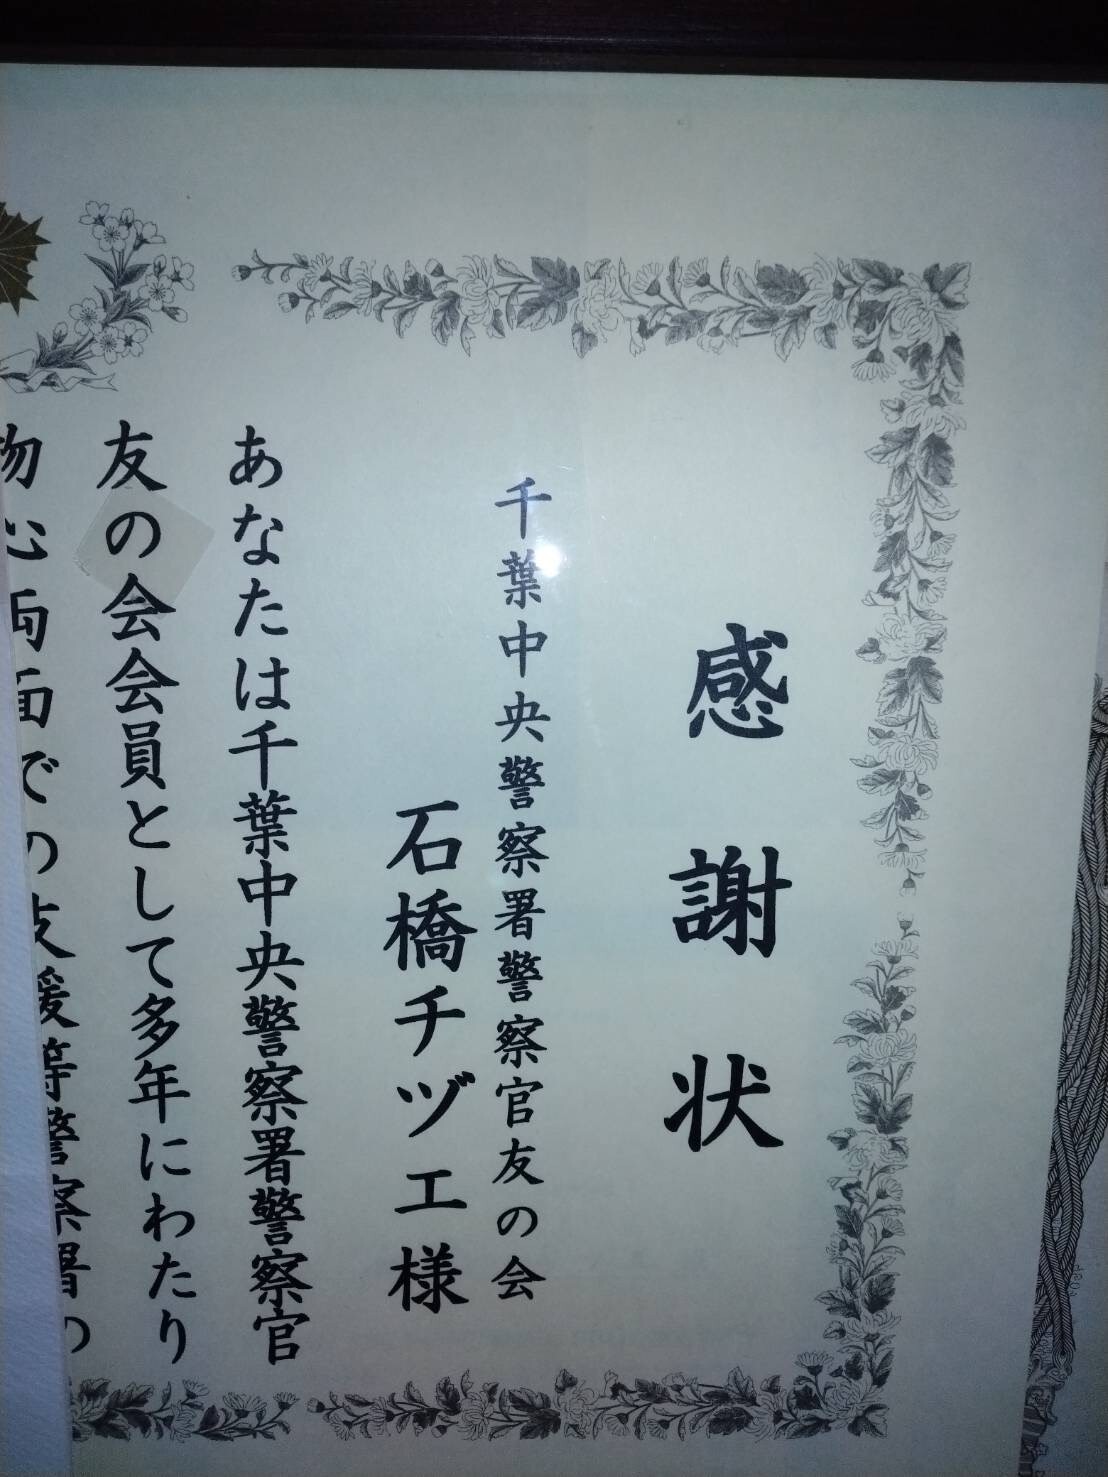 感謝状
千葉中央警察署警察官友の会
石橋チヅエ様
あなたは千葉中央警察署警察官
友の会会員として多年にわたり
物心両面での支援等警察署の